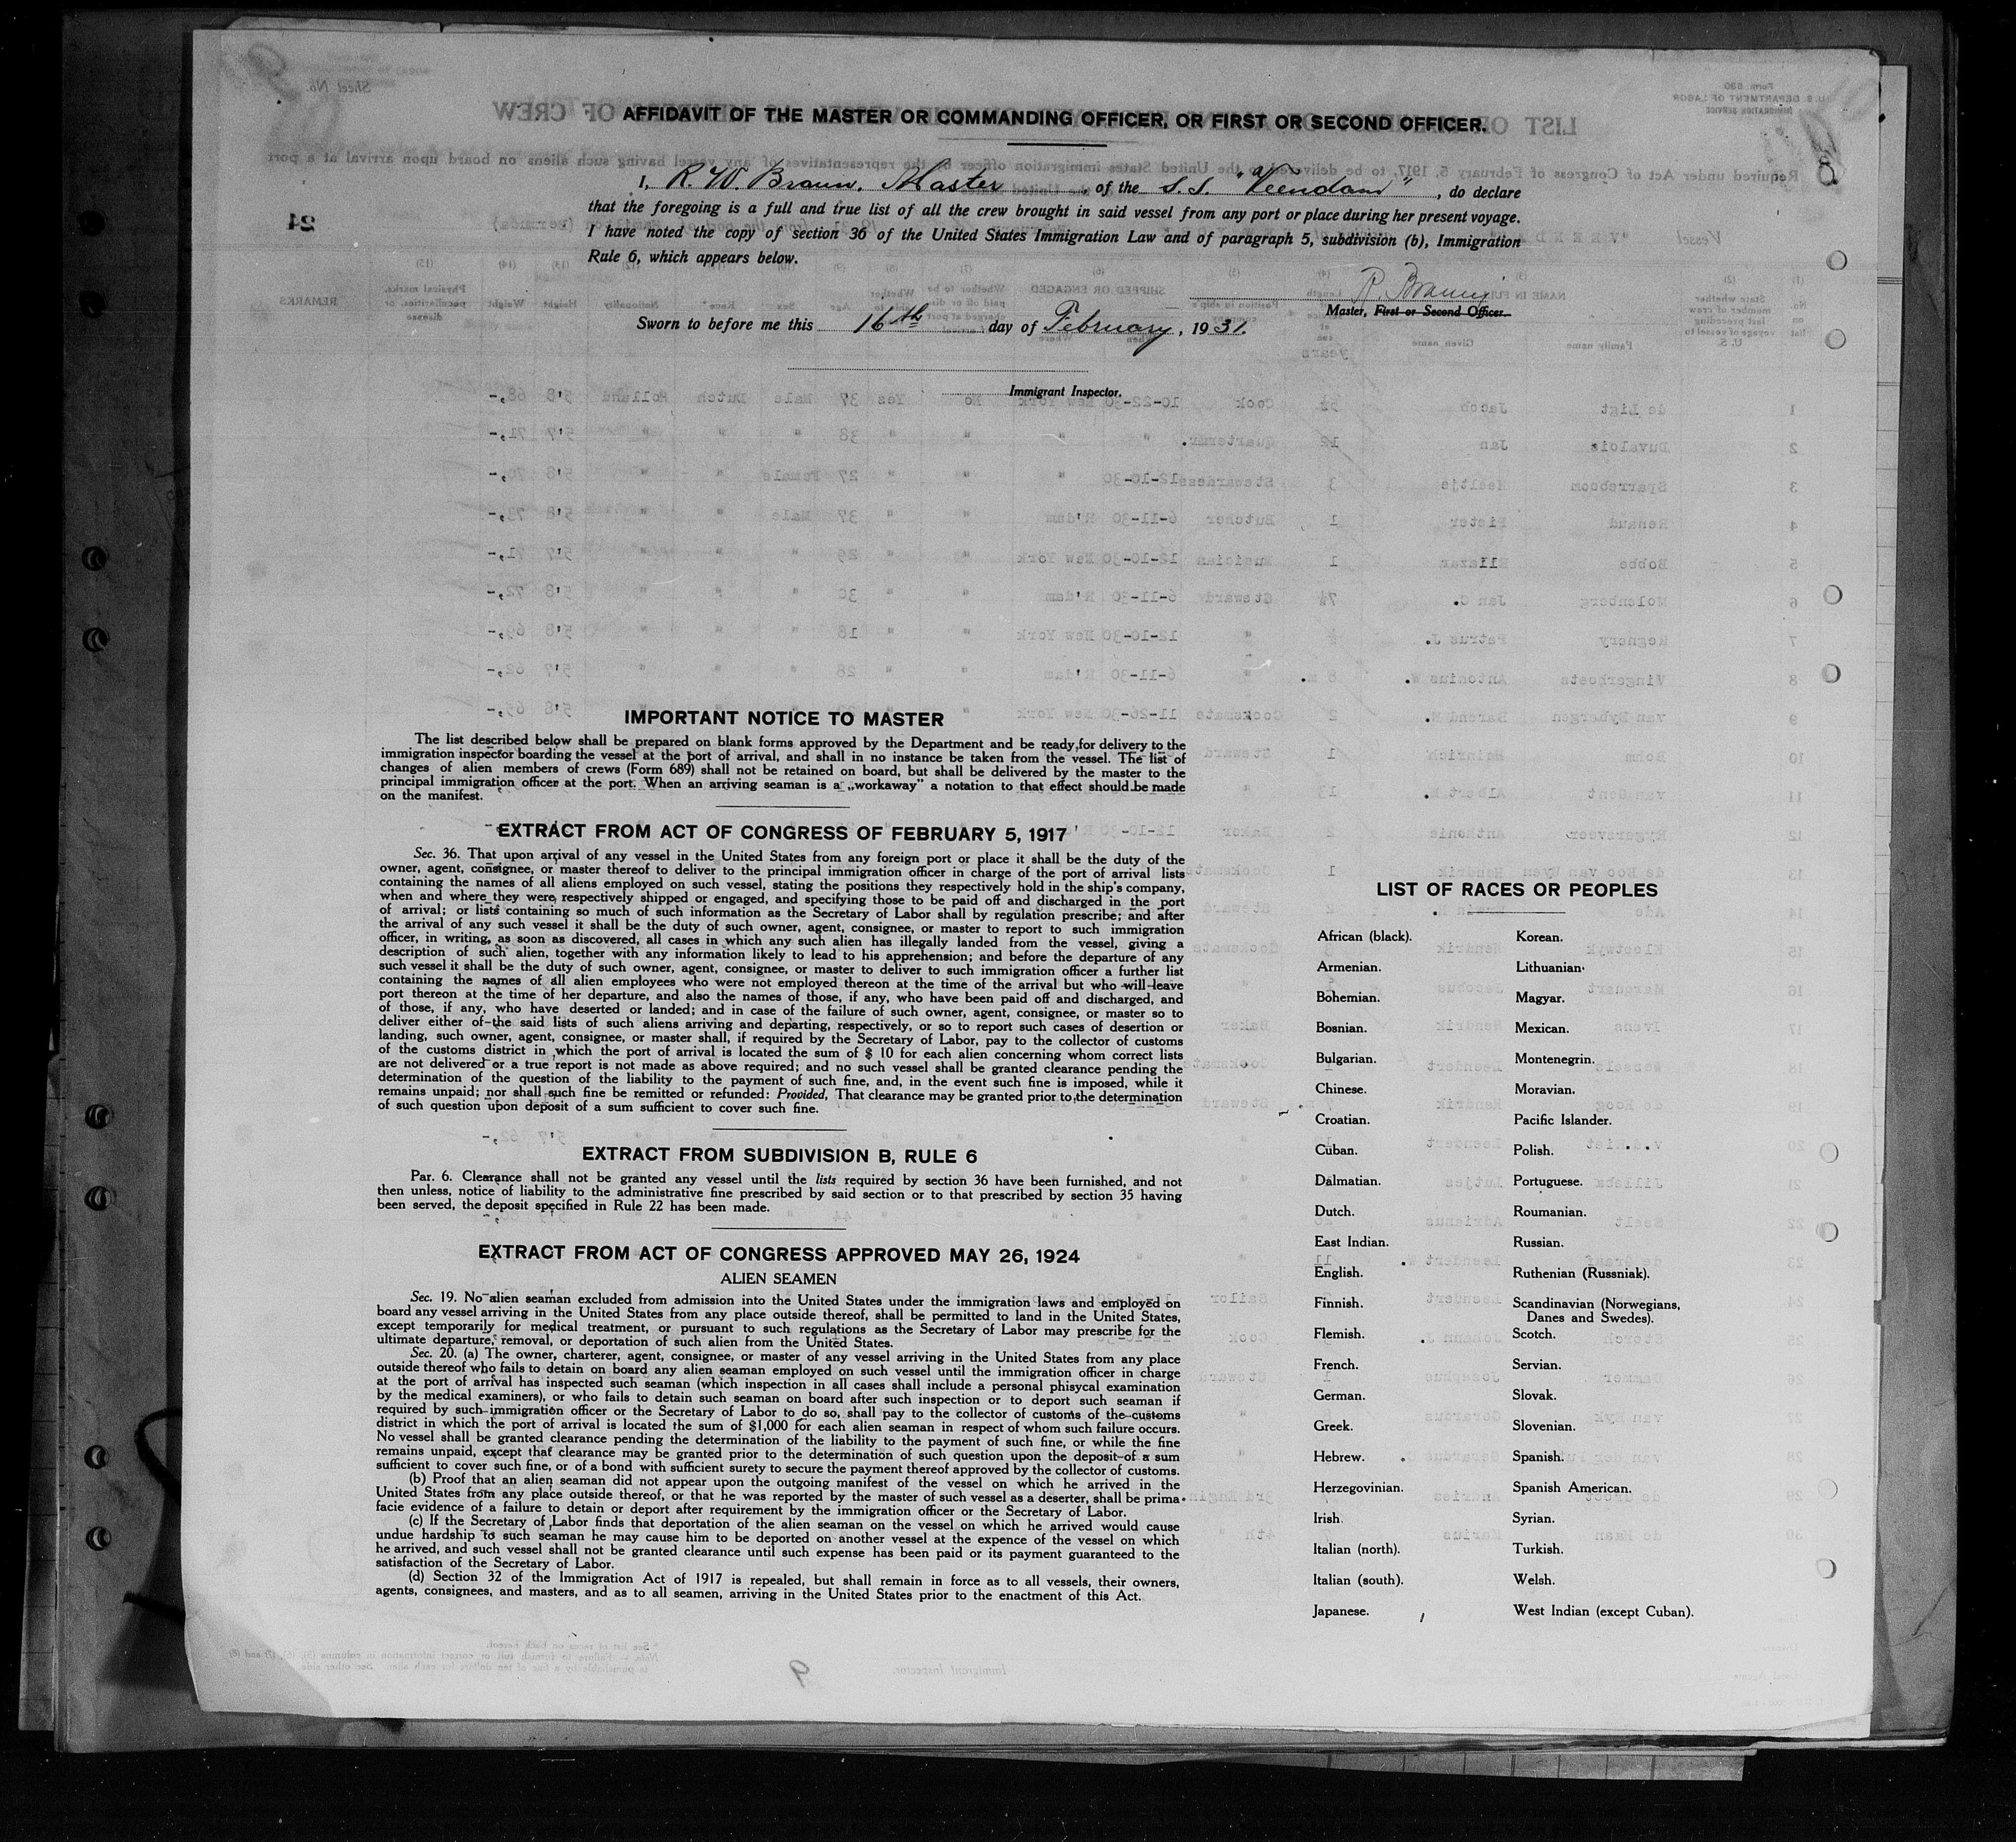 AFFIDAVIT OF THE MASTER OR COMMANDING OFFICER, OR FIRST OR SECOND OFFICER.
I, R. W. Braun, Master, of the S.S. "Veendam", do declare
that the foregoing is a full and true list of all the crew brought in said vessel from any port or place during her present voyage.
I have noted the copy of section 36 of the United States Immigration Law and of paragraph 5, subdivision (b), Immigration
Rule 6, which appears below.
R. Braun
Master, First or Second Officer.
Sworn to before me this 16th day of February, 1931.
Immigrant Inspector.
IMPORTANT NOTICE TO MASTER
The list described below shall be prepared on blank forms approved by the Department and be ready for delivery to the
immigration inspector boarding the vessel at the port of arrival, and shall in no instance be taken from the vessel. The list of
changes of alien members of crews (Form 689) shall not be retained on board, but shall be delivered by the master to the
principal immigration officer at the port. When an arriving seaman is a „workaway" a notation to that effect should be made
on the manifest.
EXTRACT FROM ACT OF CONGRESS OF FEBRUARY 5, 1917
Sec. 36. That upon arrival of any vessel in the United States from any foreign port or place it shall be the duty of the
owner, agent, consignee, or master thereof to deliver to the principal immigration officer in charge of the port of arrival lists
containing the names of all aliens employed on such vessel, stating the positions they respectively hold in the ship's company,
when and where they were respectively shipped or engaged, and specifying those to be paid off and discharged in the port
of arrival; or lists containing so much of such information as the Secretary of Labor shall by regulation prescribe; and after
the arrival of any such vessel it shall be the duty of such owner, agent, consignee, or master to report to such immigration
officer, in writing, as soon as discovered, all cases in which any such alien has illegally landed from the vessel, giving a
description of such alien, together with any information likely to lead to his apprehension; and before the departure of any
such vessel it shall be the duty of such owner, agent, consignee, or master to deliver to such immigration officer a further list
containing the names of all alien employees who were not employed thereon at the time of the arrival but who will leave
port thereon at the time of her departure, and also the names of those, if any, who have been paid off and discharged, and
of those, if any, who have deserted or landed; and in case of the failure of such owner, agent, consignee, or master so to
deliver either of the said lists of such aliens arriving and departing, respectively, or so to report such cases of desertion or
landing, such owner, agent, consignee, or master shall, if required by the Secretary of Labor, pay to the collector of customs
of the customs district in which the port of arrival is located the sum of $ 10 for each alien concerning whom correct lists
are not delivered or a true report is not made as above required; and no such vessel shall be granted clearance pending the
determination of the question of the liability to the payment of such fine, and, in the event such fine is imposed, while it
remains unpaid; nor shall such fine be remitted or refunded: Provided, That clearance may be granted prior to the determination
of such question upon deposit of a sum sufficient to cover such fine.
EXTRACT FROM SUBDIVISION B, RULE 6
Par. 6. Clearance shall not be granted any vessel until the lists required by section 36 have been furnished, and not
then unless, notice of liability to the administrative fine prescribed by said section or to that prescribed by section 35 having
been served, the deposit specified in Rule 22 has been made.
EXTRACT FROM ACT OF CONGRESS APPROVED MAY 26, 1924
ALIEN SEAMEN
Sec. 19. No alien seaman excluded from admission into the United States under the immigration laws and employed on
board any vessel arriving in the United States from any place outside thereof, shall be permitted to land in the United States,
except temporarily for medical treatment, or pursuant to such regulations as the Secretary of Labor may prescribe for the
ultimate departure, removal, or deportation of such alien from the United States.
Sec. 20. (a) The owner, charterer, agent, consignee, or master of any vessel arriving in the United States from any place
outside thereof who fails to detain on board any alien seaman employed on such vessel until the immigration officer in charge
at the port of arrival has inspected such seaman (which inspection in all cases shall include a personal phisycal examination
by the medical examiners), or who fails to detain such seaman on board after such inspection or to deport such seaman if
required by such immigration officer or the Secretary of Labor to do so, shall pay to the collector of customs of the customs
district in which the port of arrival is located the sum of $1,000 for each alien seaman in respect of whom such failure occurs.
No vessel shall be granted clearance pending the determination of the liability to the payment of such fine, or while the fine
remains unpaid, except that clearance may be granted prior to the determination of such question upon the deposit of a sum
sufficient to cover such fine, or of a bond with sufficient surety to secure the payment thereof approved by the collector of customs.
(b) Proof that an alien seaman did not appear upon the outgoing manifest of the vessel on which he arrived in the
United States from any place outside thereof, or that he was reported by the master of such vessel as a deserter, shall be prima
facie evidence of a failure to detain or deport after requirement by the immigration officer or the Secretary of Labor.
(c) If the Secretary of Labor finds that deportation of the alien seaman on the vessel on which he arrived would cause
undue hardship to such seaman he may cause him to be deported on another vessel at the expence of the vessel on which
he arrived, and such vessel shall not be granted clearance until such expense has been paid or its payment guaranteed to the
satisfaction of the Secretary of Labor.
(d) Section 32 of the Immigration Act of 1917 is repealed, but shall remain in force as to all vessels, their owners,
agents, consignees, and masters, and as to all seamen, arriving in the United States prior to the enactment of this Act.
LIST OF RACES OR PEOPLES
African (black).
Armenian.
Bohemian.
Bosnian.
Bulgarian.
Chinese.
Croatian.
Cuban.
Dalmatian.
Dutch.
East Indian.
English.
Finnish.
Flemish.
French.
German.
Greek.
Hebrew.
Herzegovinian.
Irish.
Italian (north).
Italian (south).
Japanese.
Korean.
Lithuanian.
Magyar.
Mexican.
Montenegrin.
Moravian.
Pacific Islander.
Polish.
Portuguese.
Roumanian.
Russian.
Ruthenian (Russniak).
Scandinavian (Norwegians,
Danes and Swedes).
Scotch.
Servian.
Slovak.
Slovenian.
Spanish.
Spanish American.
Syrian.
Turkish.
Welsh.
West Indian (except Cuban).